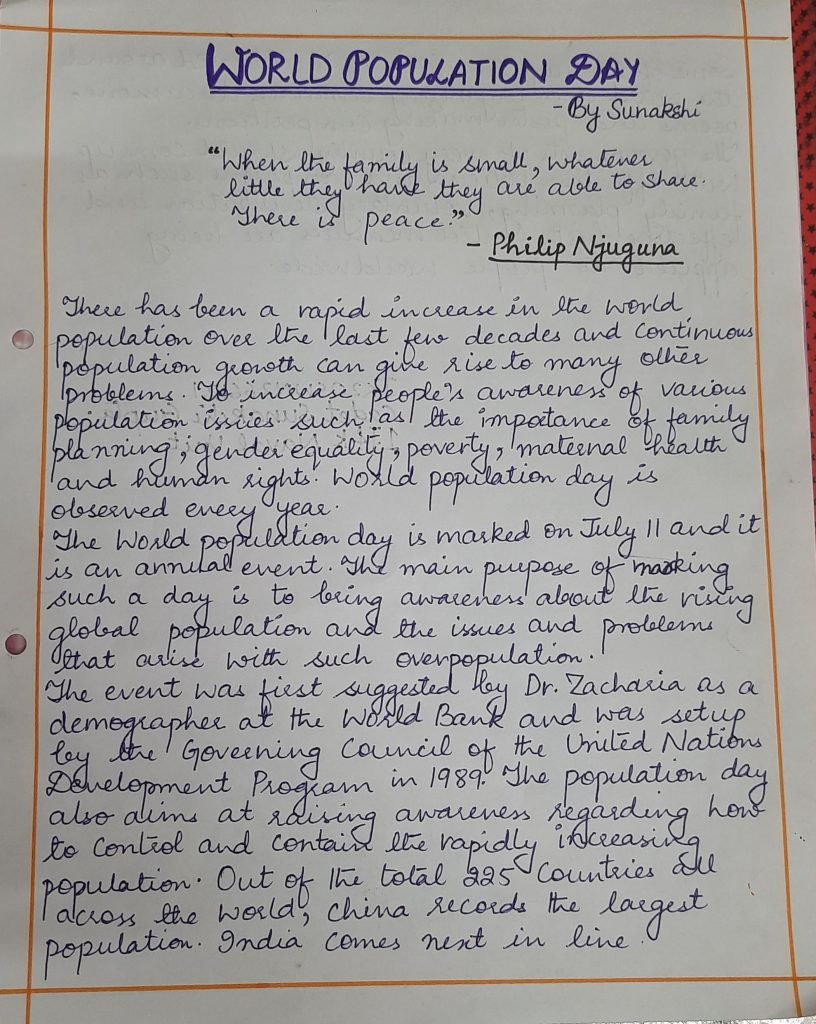 WORLD POPULATION DAY
- By Sunakshi
"When the family is small, whatever
little they have they are able to share.
There is peace."
- Philip Njuguna
There has been a rapid increase in the world
population over the last few decades and continuous
population growth can give rise to many other
problems. To increase people's awareness of various
population issues such as the impotance of family
planning, gender equality, poverty, maternal health
and human rights. World population day is
observed every year.
The World population day is marked on July 11 and it
is an annual event. The main purpose of marking
such a day is to bring awareness about the rising
global population and the issues and problems
that arise with such overpopulation.
The event was first suggested by Dr. Zacharia as a
demographer at the World Bank and was setup
by the Governing Council of the United Nations
Development Program in 1989. The population day
also aims at raising awareness regarding how
to control and contain the rapidly increasing
population. Out of the total 225 countries all
across the world, China records the largest
population. India comes next in line.